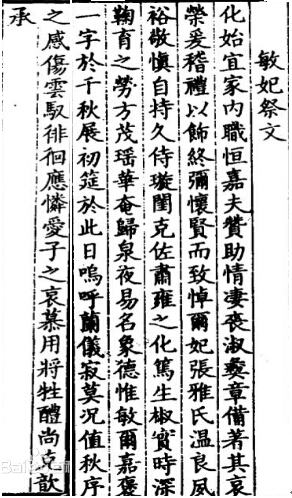 敏妃祭文
化始宜家内職恒嘉夫贊助情淒喪淑懿章備著其哀
榮爰稽禮以飾終彌懷賢而致悼爾妃張雅氏温良夙
裕敬慎自持久侍璇闈克佐肅雍之化篤生椒實時深
鞠育之勞方茂瑶華奄歸泉夜易名象德惟敏爾嘉褒
一字於千秋展初筵於此日嗚呼蘭儀寂莫况值秋序
之感傷雲馭徘徊應憐愛子之哀慕用將牲醴尚克歆
承